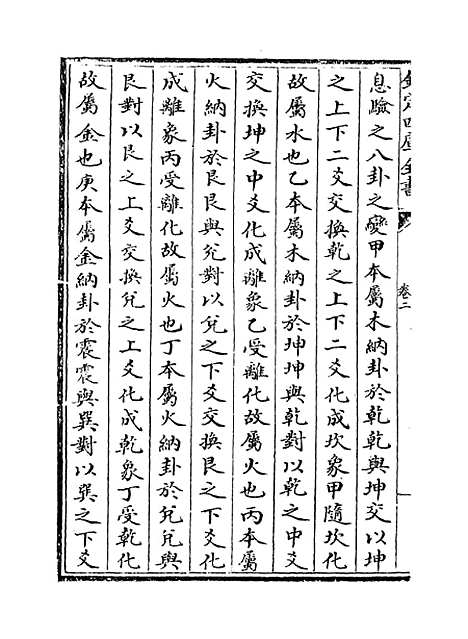 欽定四庫全書
卷二
息驗之八卦之變甲本屬木納卦於乾乾與坤交以坤
之上下二爻交換乾之上下二爻化成坎象甲隨坎化
故屬水也乙本屬木納卦於坤坤與乾對以乾之中爻
交換坤之中爻化成離象乙受離化故屬火也丙本屬
火納卦於艮艮與兌對以兌之下爻交換艮之下爻化
成離象丙受離化故屬火也丁本屬火納卦於兌兌與
艮對以艮之上爻交換兌之上爻化成乾象丁受乾化
故屬金也庚本屬金納卦於震震與巽對以巽之下爻